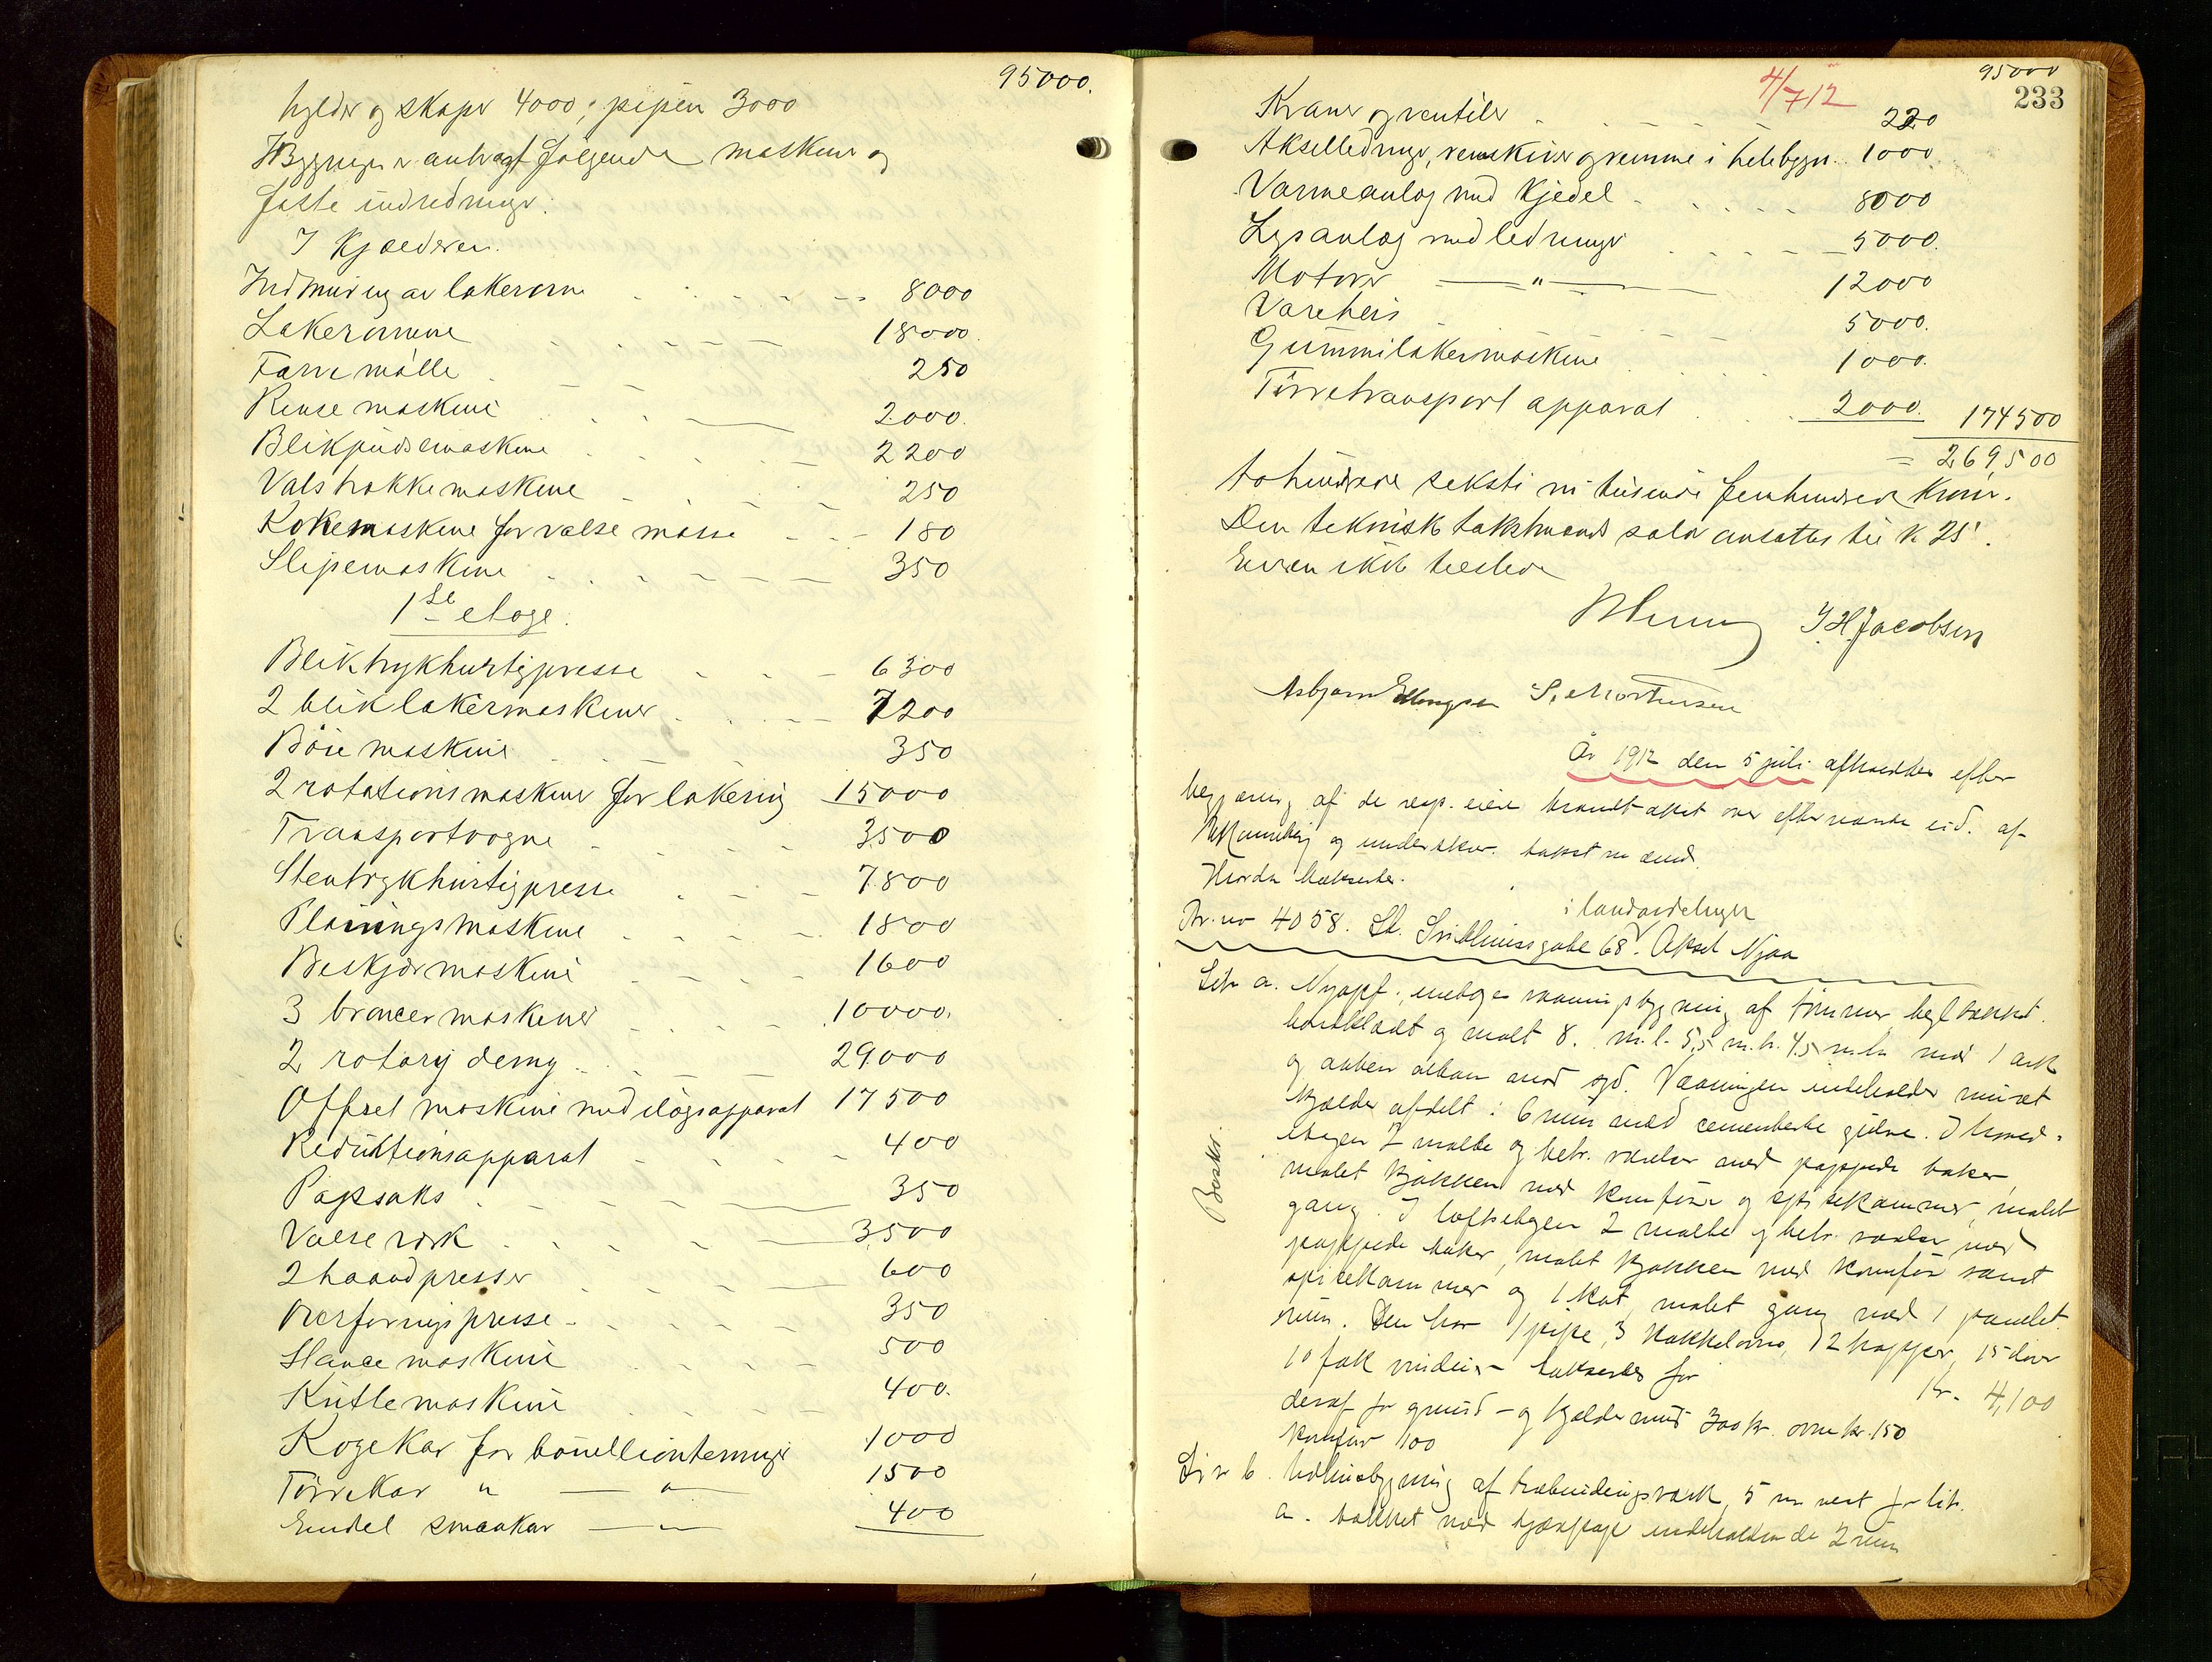 95000.
hylder og skaper 4000; pipen 3000
I Bygningen er anbragt følgende maskiner og
faste indredninger.
I Kjælderen.
Indmuring av lakerovne 8000
Lakerovnene 18000
Farvemølle 250
Rensemaskine 2000.
Blikpudsemaskine 2200
Valstrokkemaskine 250
Kokemaskine for valsemasse 180
Slipemaskine 350
1ste etage.
Bliktrykhurtigpresse 6300
2 bliklakermaskiner 7200
Bøiemaskine 350
2 rotationsmaskiner for lakering 15000
Transportvogne 3500
Stentrykhurtigpresse 7800
Planingsmaskine 1800
Beskjærmaskine 1600
3 broncermaskiner 10000.
2 rotary demy 29000
Offset maskine med ilægsapparat 17500
Reduktionsapparat 400
Papsaks 350
Valseverk 3500
2 haandpresser 600
Overføringspresse 350
Stancemaskine 500
Knitlemaskine 400.
Kogekar for bouillionterninger 1000
Tørrekar " — " — 1500
Endel smaakar — " — 400
4/7 12
95000
233
Kraner og ventiler 220
Akselledninger, remskiver og remme i hele bygn. 1000
Varmeanlæg med Kjedel 8000
Lysanlæg med ledninger 5000.
Motorer — " — 12000
Vareheis 5000.
Gummilakermaskine 1000.
Tørretransport apparat 2000. 174500
= 269500
tohundrede seksti ni tusende femhundrede Kroner.
Den tekniske takstmands salær ansattes til K 25.
Eieren ikke tilstede
J H Jacobsen
Asbjørn Ellingsen S. Mortensen
År 1912 den 5 juli afholdtes efter
begjæring af de resp. eiere brandtakst over efternævnte eid. af
og underskr. takstmænd.
Hvorda takseredes.
i landardelingen
Br. no 4058. St. Svithunsgade 68. Aksel Njaa
Litr a. Nyopf. enetages vaaningsbygning af tømmer tegltækket.
bordklædt og malt 8. m. l. 5,5 m. b. 4,5 m. h. med 1 ark
og aaben altan mod syd. Vaaningen indeholder muret
Kjælder afdelt i 6 rum med cementerte gulve. I hoved-
etagen 2 malte og betr. værelser med pappede taker,
malet Kjøkken med Komfur og spisekammer, malet
gang. I loftsetagen 2 malte og betr. værelser med
pappede taker, malet Kjøkken med Komfur samt
spisekammer og 1 Kot, malet gang med 1 panelet
rum. Den har 1 pipe, 3 Kakkelovne, 2 trapper, 15 døre
10 fak vinduer — takseredes for Kr. 4,100
deraf for grund- og Kjældermur 300 Kr. ovne kr. 150
Komfur 100
Beskr.
Litr b. Udhusbygning af træbindingsværk, 5 m vest for litr.
a. tækket med tjærepap indeholdende 2 rum